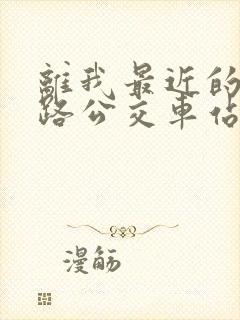 離我最近的
路公交車佔
漫觞